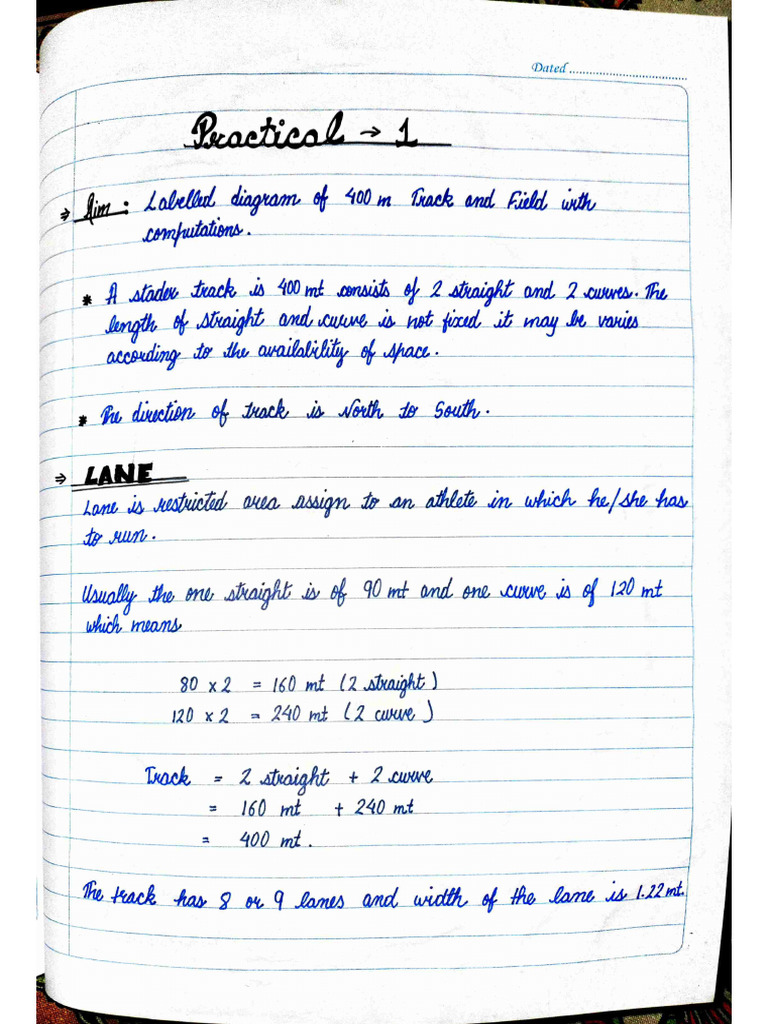 Dated
Practical → 1
⇒ Aim : Labelled diagram of 400 m Track and Field with
computations.
* A stader track is 400 mt consists of 2 straight and 2 curves. The
length of straight and curve is not fixed it may be varies
according to the availability of space.
* The direction of track is North to South.
⇒ LANE
Lane is restricted area assign to an athlete in which he/she has
to run.
Usually the one straight is of 90 mt and one curve is of 120 mt
which means
80 x 2 = 160 mt (2 straight)
120 x 2 = 240 mt (2 curve)
Track = 2 straight + 2 curve
= 160 mt + 240 mt
= 400 mt.
The track has 8 or 9 lanes and width of the lane is 1.22 mt.